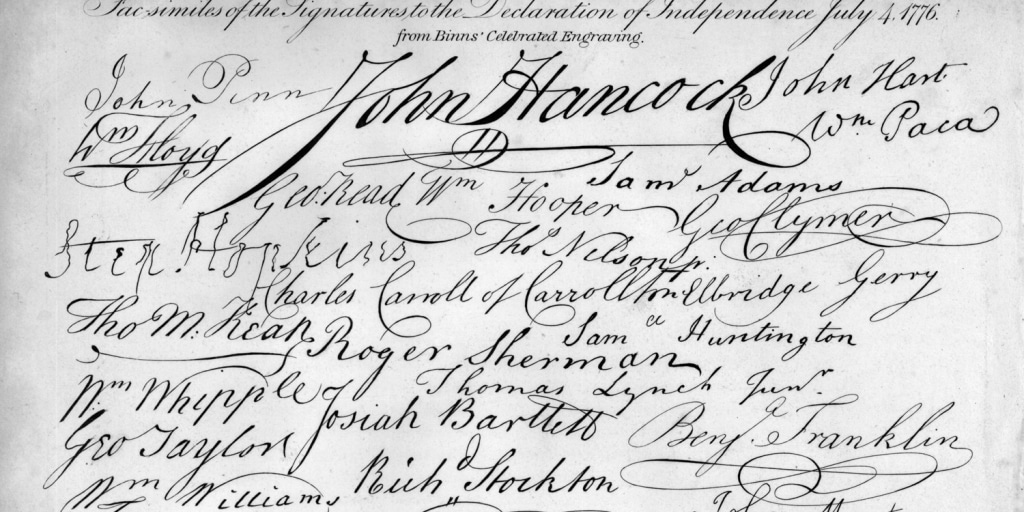 Fac-similes of the Signatures to the Declaration of Independence July 4. 1776.
from Binns' Celebrated Engraving.
John Penn
John Hancock
John Hart
Wm Floyd
Wm Paca
Geo. Read
Wm Hooper
Saml Adams
Geo Clymer
Step. Hopkins
Thos Nelson jr.
Charles Carroll of Carrollton
Elbridge Gerry
Tho M. Kean
Roger Sherman
Saml Huntington
Wm Whipple
Thomas Lynch Junr.
Josiah Bartlett
Benj. Franklin
Geo Taylor
Richd Stockton
Wm Williams